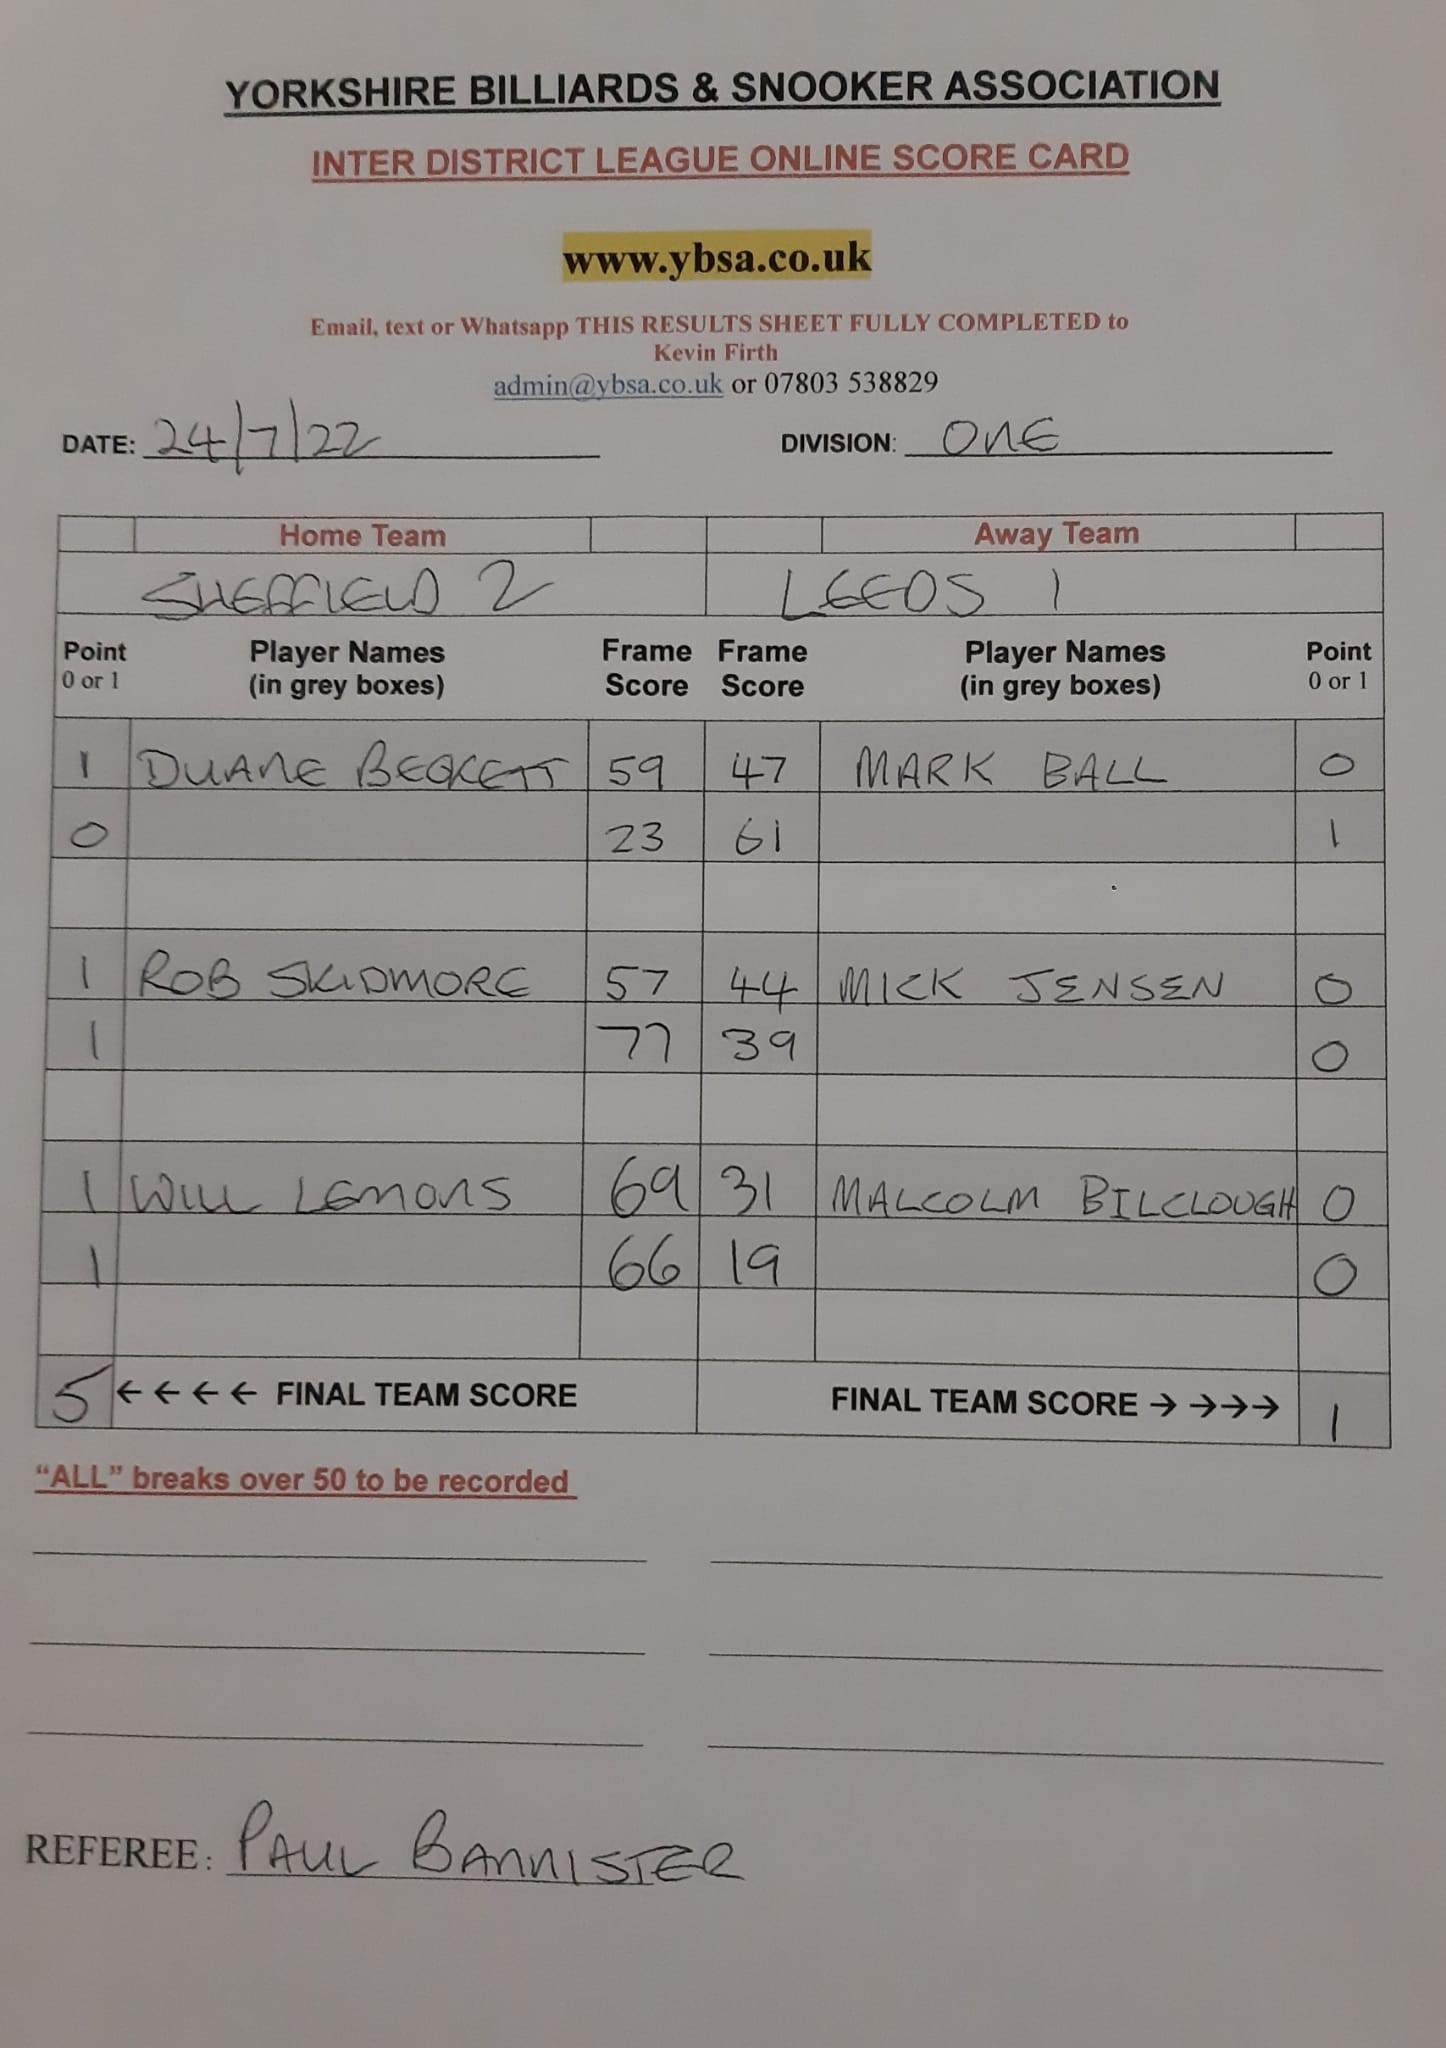 YORKSHIRE BILLIARDS & SNOOKER ASSOCIATION
INTER DISTRICT LEAGUE ONLINE SCORE CARD
www.ybsa.co.uk
Email, text or Whatsapp THIS RESULTS SHEET FULLY COMPLETED to
Kevin Firth
admin@ybsa.co.uk or 07803 538829
DATE: 24/7/22 DIVISION: ONE
Home Team Away Team
SHEFFIELD 2 LEEDS 1
Point Player Names Frame Frame Player Names Point
0 or 1 (in grey boxes) Score Score (in grey boxes) 0 or 1
1 DUANE BECKETT 59 47 MARK BALL 0
0 23 61 1
1 ROB SKIDMORE 57 44 MICK JENSEN 0
1 77 39 0
1 WILL LEMONS 69 31 MALCOLM BILCLOUGH 0
1 66 19 0
5 ← ← ← ← FINAL TEAM SCORE FINAL TEAM SCORE → →→→ 1
“ALL” breaks over 50 to be recorded
REFEREE: PAUL BANNISTER